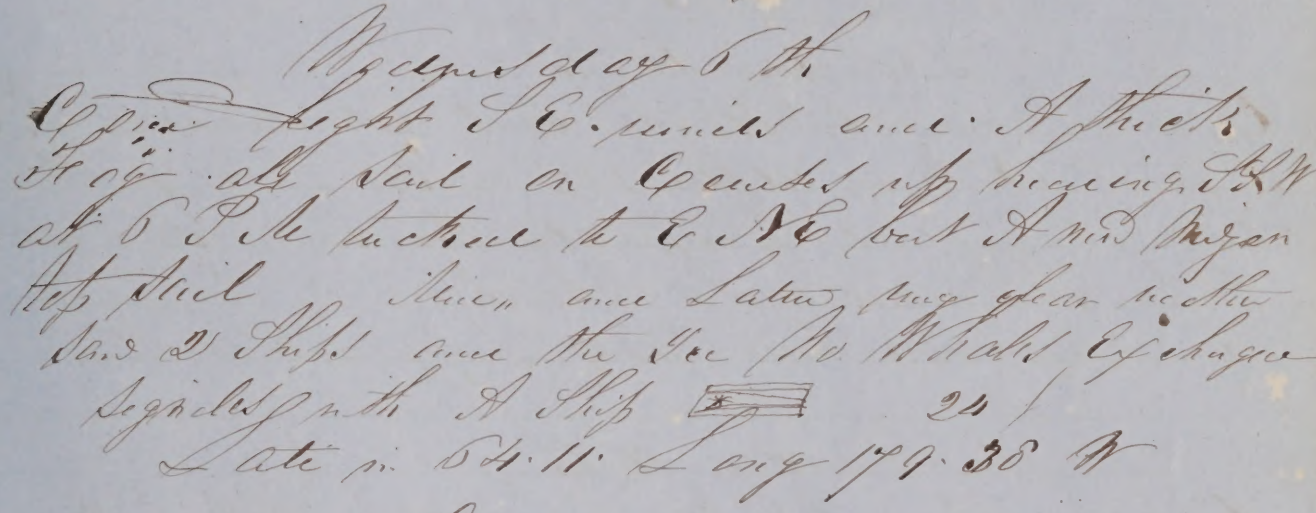 Wedensday 6 th
Comes light S E. winds and A thick
Fog all Sail on Courses up heading S S W
at 6 P M tacked to E N E bent A new Mizen
top sail Mid,, and Latter part clear wether
saw 2 Ships and the Ice No Whales Exchged
signeles with A Ship 24
Late in 64.11. Long 179.36 W